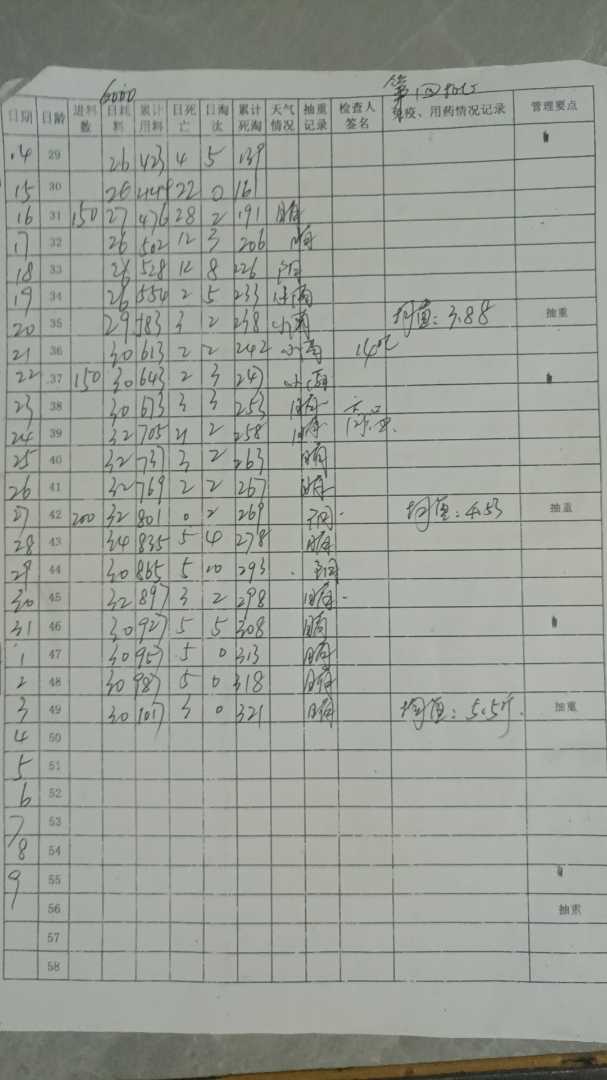 6000 第1回
日期 日龄 进料数 日耗料 累计用料 日死亡 日淘汰 累计死淘 天气情况 抽重记录 检查人签名 免疫、用药情况记录 管理要点
14 29 26 423 4 5 139
15 30 26 449 22 0 161
16 31 150 27 476 28 2 191 晴
17 32 26 502 12 3 206 晴
18 33 26 528 12 8 226 阴
19 34 26 554 2 5 233 雨
20 35 29 583 3 2 238 小雨 均重:3.88 抽重
21 36 30 613 2 2 242 小雨
22 37 150 30 643 2 3 247 小雨
23 38 30 673 3 3 253 晴
24 39 32 705 2 258 晴
25 40 32 737 3 2 263 晴
26 41 32 769 2 2 267 晴
27 42 200 32 801 0 2 269 阴 均重:4.53 抽重
28 43 34 835 5 4 278 晴
29 44 30 865 5 10 293 阴
30 45 32 897 3 2 298 晴
31 46 30 927 5 5 308 晴
1 47 30 957 5 0 313 晴
2 48 30 987 5 0 318 晴
3 49 30 1017 3 0 321 晴 均重:5.5斤. 抽重
4 50
5 51
6 52
7 53
8 54
9 55
56 抽重
57
58